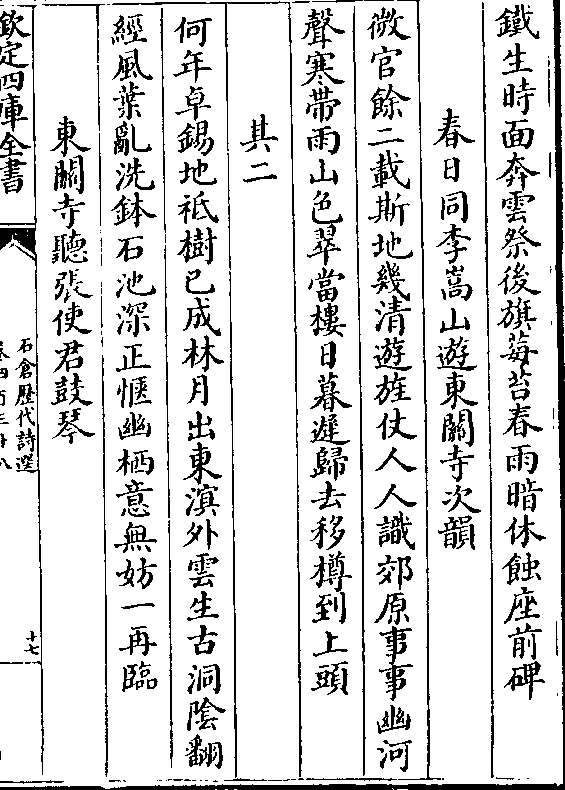 鐵生時面奔雲祭後旗莓苔春雨暗休蝕座前碑
春日同李嵩山遊東關寺次韻
微官餘二載斯地幾清遊旌仗人人識郊原事事幽河
聲寒帶雨山色翠當樓日暮遲歸去移樽到上頭
其二
何年卓錫地祇樹已成林月出東滇外雲生古洞陰翻
經風葉亂洗鉢石池深正愜幽栖意無妨一再臨
東關寺聽張使君鼓琴
欽定四庫全書
石倉歷代詩選
十七